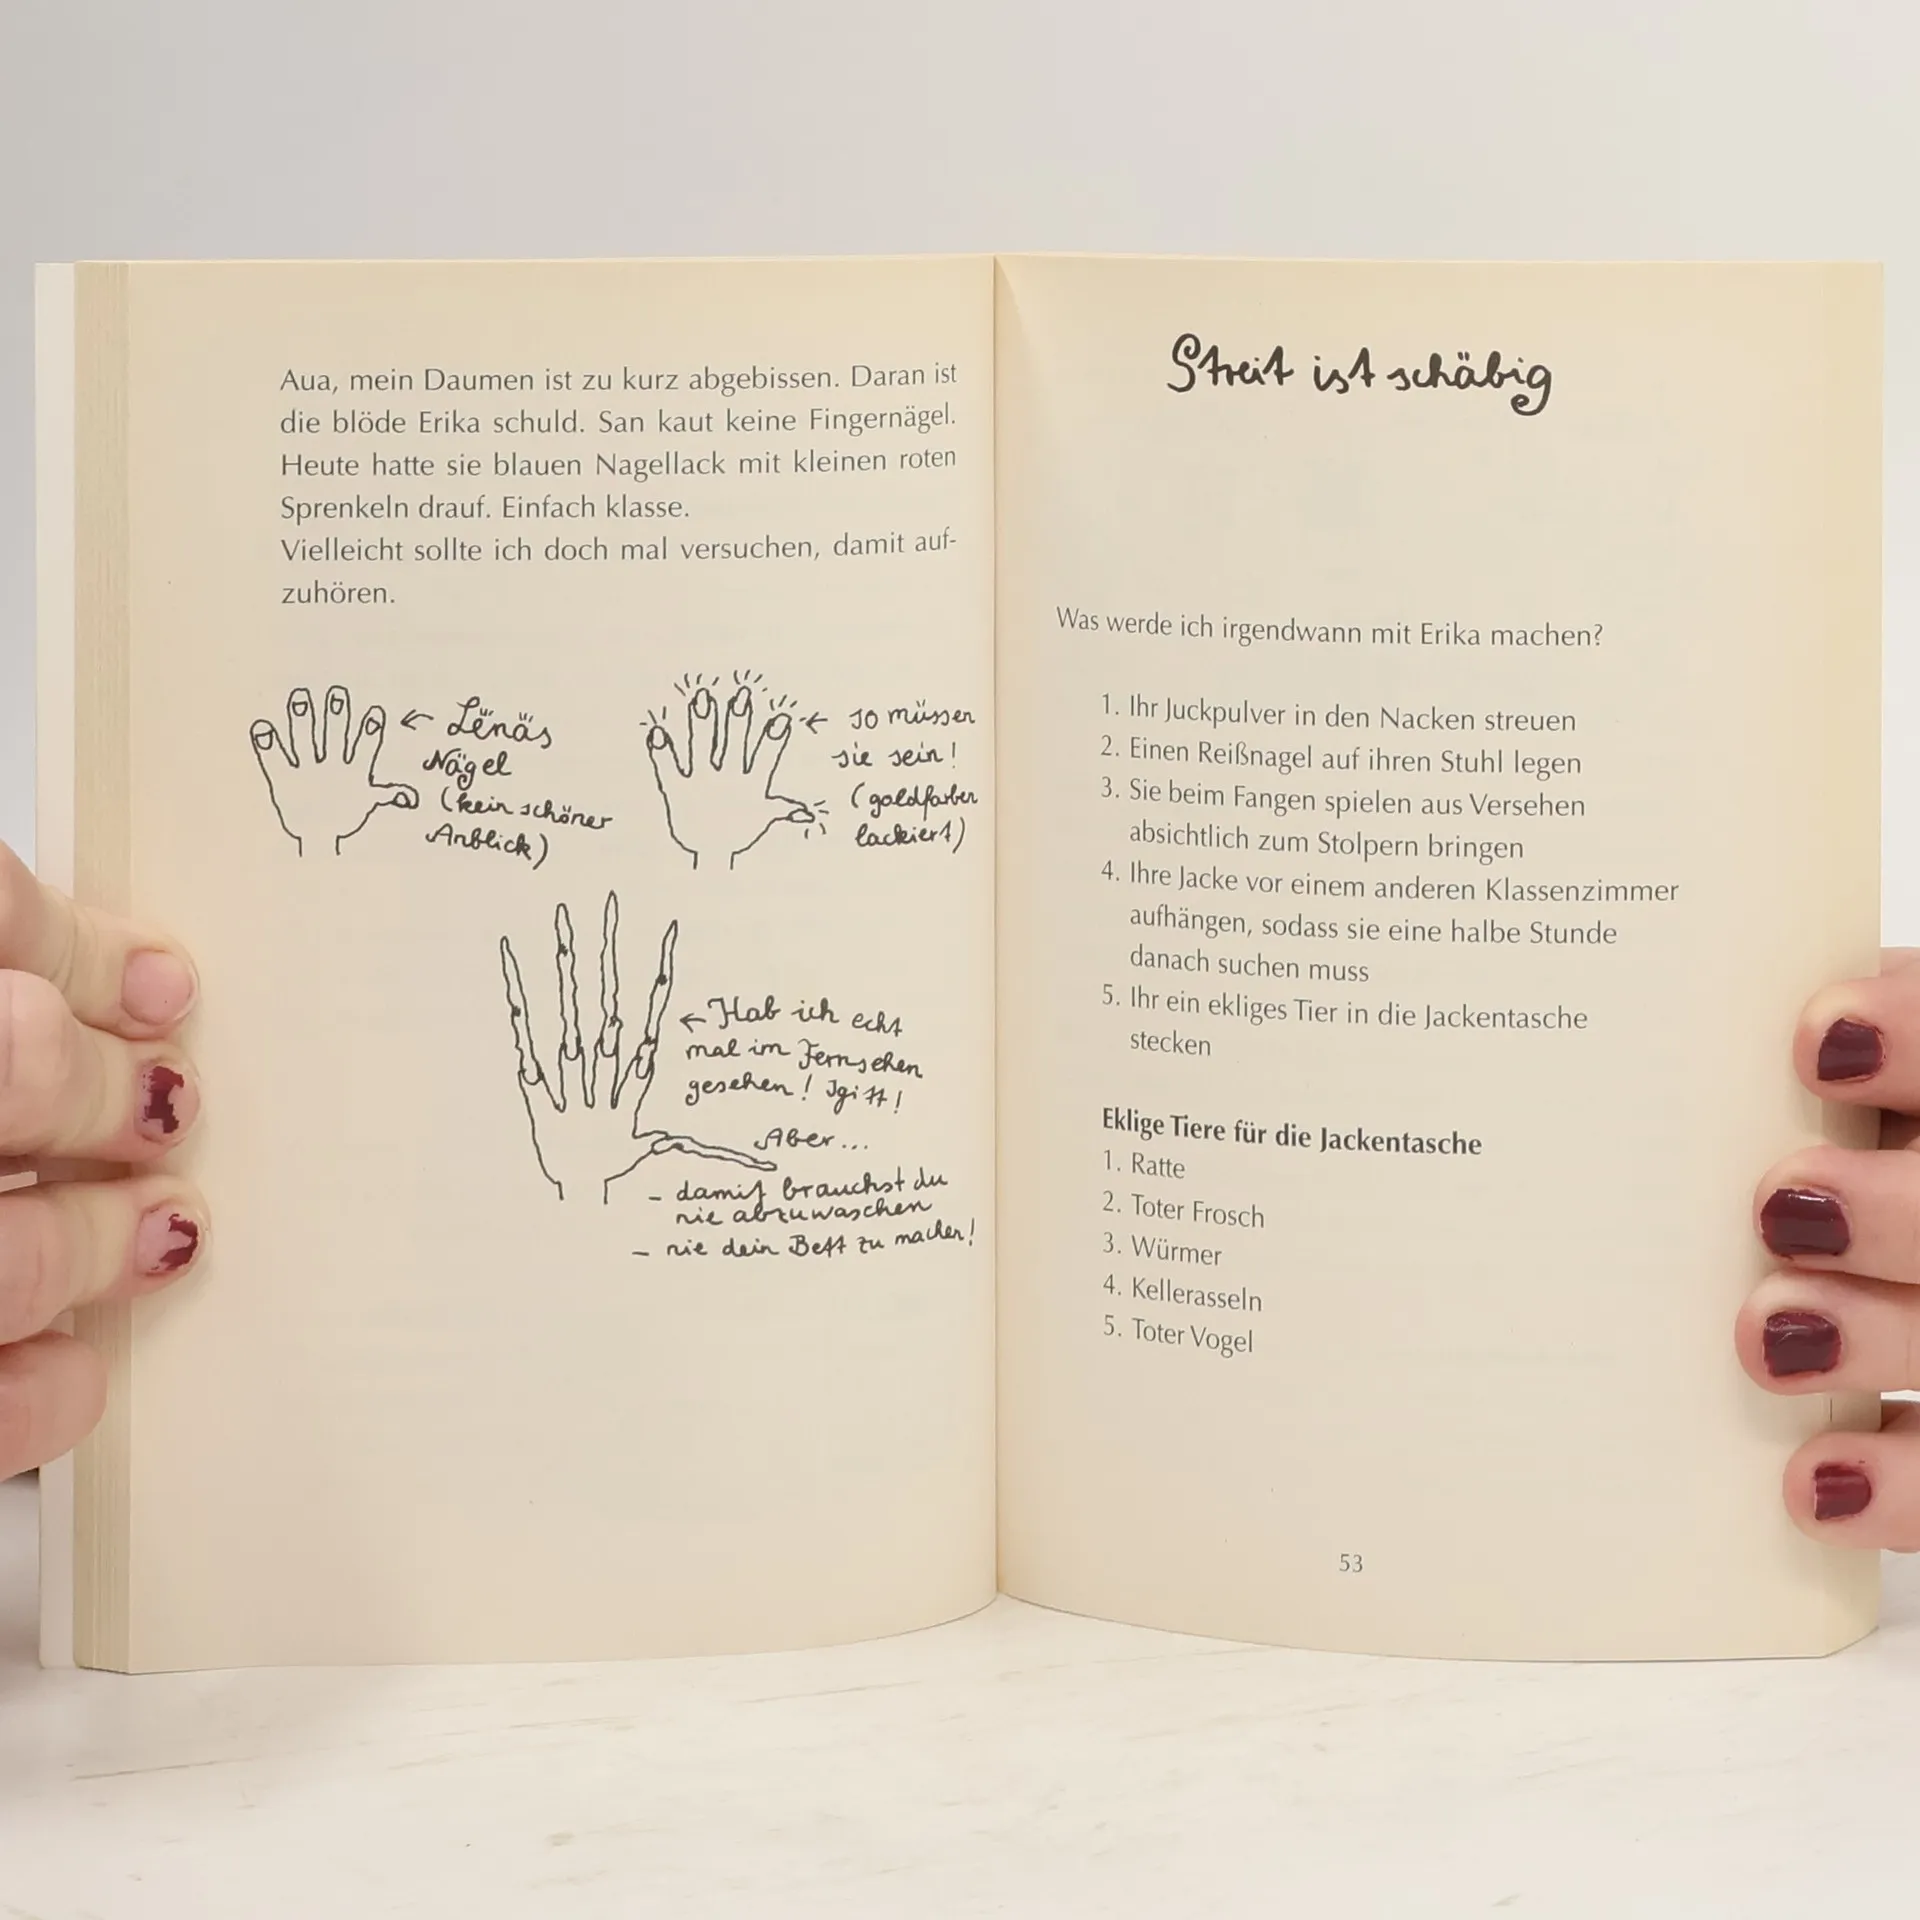 Aua, mein Daumen ist zu kurz abgebissen. Daran ist
die blöde Erika schuld. San kaut keine Fingernägel.
Heute hatte sie blauen Nagellack mit kleinen roten
Sprenkeln drauf. Einfach klasse.
Vielleicht sollte ich doch mal versuchen, damit auf-
zuhören.
← Lënäs
Nägel
(kein schöner
Anblick)
← so müssen
sie sein!
(goldfarben
lackiert)
← Hab ich echt
mal im Fernsehen
gesehen! Igitt!
Aber...
- damit brauchst du
nie abzuwaschen
- nie dein Bett zu machen!
Streit ist schäbig
Was werde ich irgendwann mit Erika machen?
1. Ihr Juckpulver in den Nacken streuen
2. Einen Reißnagel auf ihren Stuhl legen
3. Sie beim Fangen spielen aus Versehen
absichtlich zum Stolpern bringen
4. Ihre Jacke vor einem anderen Klassenzimmer
aufhängen, sodass sie eine halbe Stunde
danach suchen muss
5. Ihr ein ekliges Tier in die Jackentasche
stecken
Eklige Tiere für die Jackentasche
1. Ratte
2. Toter Frosch
3. Würmer
4. Kellerasseln
5. Toter Vogel
53